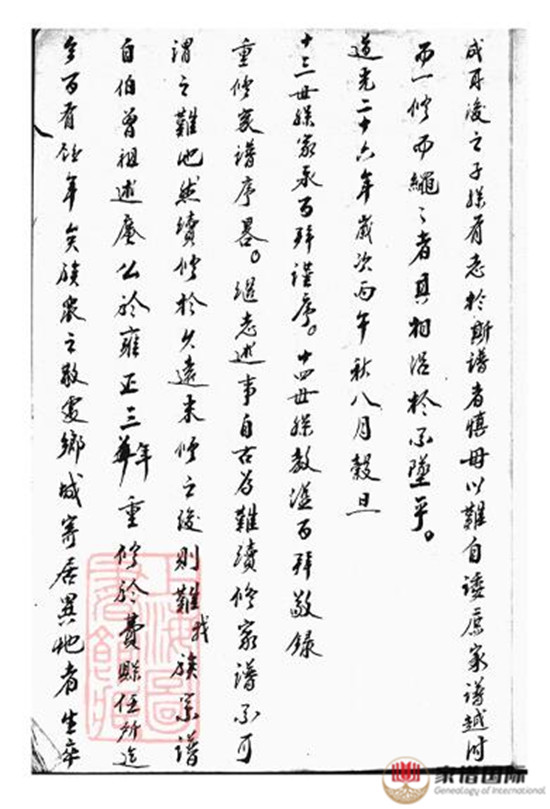 成耳後之子孫有志於斯譜者慎毋以難自諉庶家譜越时
而一修而繩〻者具相沿於不墜乎。
道光二十六年歲次丙午秋八月穀旦
十三世孫家永百拜謹序。十四世孫敦百拜敬録
重修家譜序畧。继志述事自古为難續修家譜不可
謂之難也然續修於久遠未修之後則難我族宗譜
自伯曾祖述廉公於雍正三年重修於費縣任所迄
今百有餘年矣族衆之散處鄉城寄居異地者生卒
上海圖書館藏
家谱国际
Genealogy of International